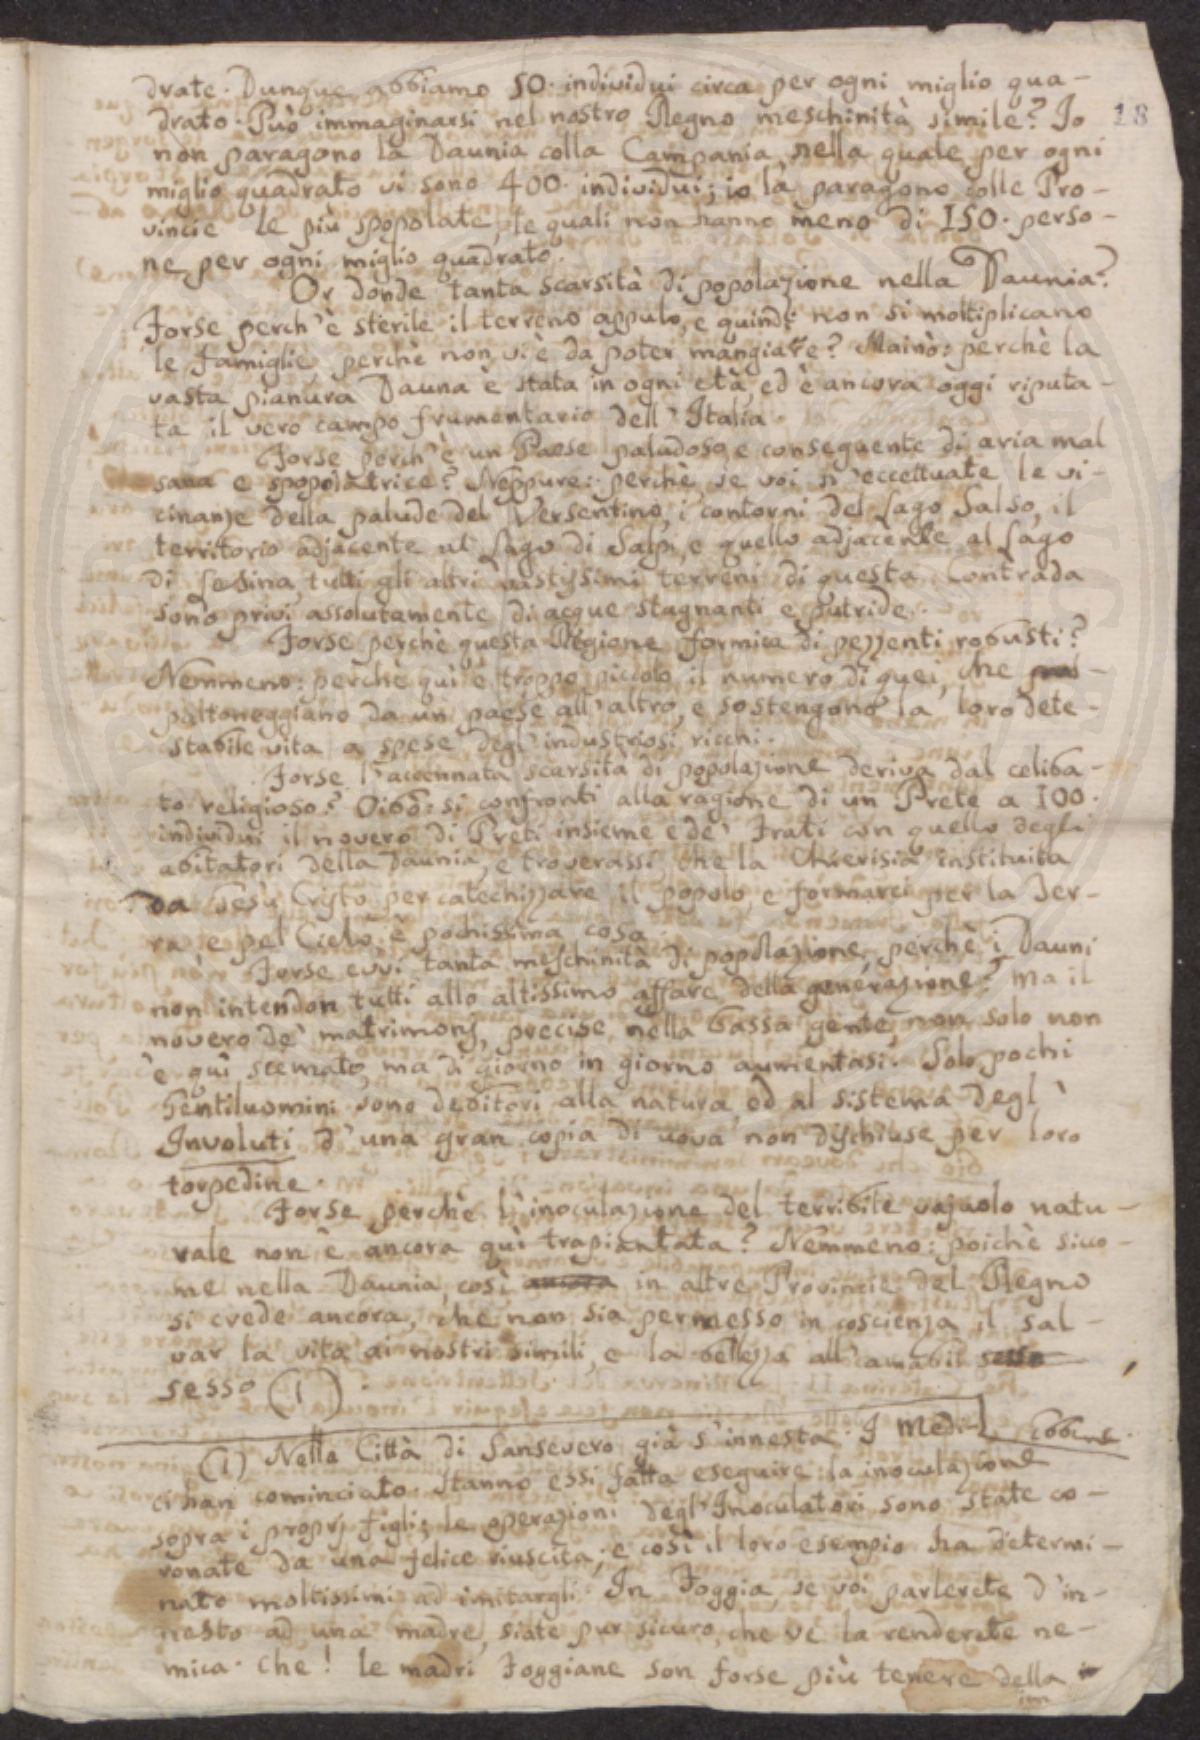 drate. Dunque abbiamo 50. individui circa per ogni miglio qua-
drato. Può immaginarsi nel nostro Regno meschinità simile? Io
18
non paragono la Daunia colla Campania, nella quale per ogni
miglio quadrato vi sono 400. individui; io la paragono colle Pro-
vincie le più spopolate, le quali non hanno meno di 150. perso-
ne per ogni miglio quadrato.
Or donde tanta scarsità di popolazione nella Daunia?
Forse perch'è sterile il terreno appulo, e quindi non si moltiplicano
le famiglie, perchè non vi è da poter mangiare? Mainò: perchè la
vasta pianura Dauna è stata in ogni età, ed è ancora oggi riputa-
ta il vero campo frumentario dell'Italia.
Forse perch'è un Paese paludoso, e conseguente di aria mal
sana e spopolatrice? Neppure: perchè, se voi n'eccettuate le vi-
cinanze della palude del Versentino, i contorni del Lago Salso, il
territorio adjacente al Lago di Salpi, e quello adjacente al Lago
di Lesina, tutti gli altri vastissimi terreni di questa Contrada
sono privi assolutamente di acque stagnanti e putride.
Forse perchè questa Regione formica di pezzenti robusti?
Nemmeno: perchè quì è troppo piccolo il numero di quei, che
paltoneggiano da un paese all'altro, e sostengono la loro dete-
stabile vita a spese degl'industriosi ricchi.
Forse l'accennata scarsità di popolazione deriva dal celiba-
to religioso? Oibò: si confronti alla ragione di un Prete a 100.
individui il novero di Preti insieme e de' Frati con quello degli
abitatori della Daunia, e troverassi, che la Chierisia instituita
da Gesù Cristo per catechizzare il popolo, e formarci per la Ter-
ra, e pel Cielo, è pochissima cosa.
Forse evvi tanta meschinità di popolazione, perchè i Dauni
non intendon tutti allo altissimo affare della generazione? Ma il
novero de' matrimonj, precise nella bassa gente, non solo non
è quì scemato, ma di giorno in giorno aumentasi. Solo pochi
Gentiluomini sono debitori alla natura, ed al sistema degl'
Involuti d'una gran copia di uova non dischiuse per loro
torpedine.
Forse perchè l'inoculazione del terribile vajuolo natu-
rale non è ancora quì trapiantata? Nemmeno: poichè sicco-
me nella Daunia, così ancora in altre Provincie del Regno
si crede ancora, che non sia permesso in coscienza il sal-
var la vita ai nostri simili, e la bellezza all'amabil sesso
sesso (1).
(1) Nella Città di Sansevero già s'innesta. I Medi-
ci han cominciato. Hanno essi fatta eseguire la inoculazione
sopra i proprj figli; le operazioni degl'Inoculatori sono state co-
ronate da una felice riuscita; e così il loro esempio ha determi-
nato moltissimi ad imitargli. In Foggia, se voi parlerete d'in-
nesto ad una madre, siate pur sicuro, che ve la renderete ne-
mica. Che! le madri Foggiane son forse più tenere della
im